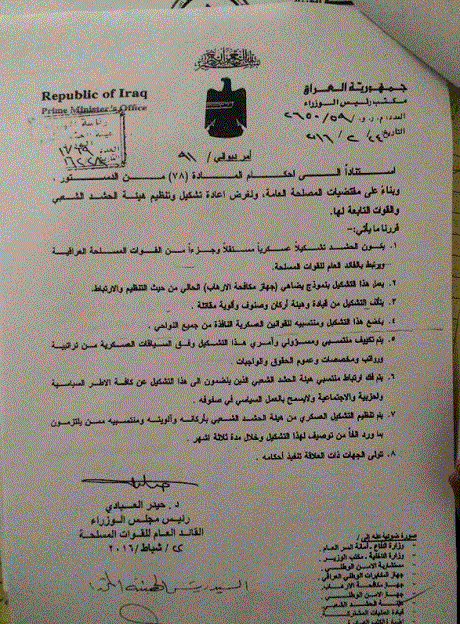 بسم الله الرحمن الرحيم
Republic of Iraq
Prime Minister's Office
جمهورية العراق
مكتب رئيس الوزراء
العدد: م.ر.و/٥٩/٢٦٥٠
التاريخ ٢٠١٦/٢/٢٤
أمر ديواني / ٩١
استناداً الى احكام المادة (٧٨) من الدستور ،
وبناءً على مقتضيات المصلحة العامة، ولغرض اعادة تشكيل وتنظيم هيئة الحشد الشعبي
والقوات التابعة لها.
قررنا ما يأتي:-
١. يكون الحشد تشكيلاً عسكرياً مستقلاً وجزءاً من القوات المسلحة العراقية
ويرتبط بالقائد العام للقوات المسلحة.
٢. يعمل هذا التشكيل بنموذج يضاهي (جهاز مكافحة الارهاب) الحالي من حيث التنظيم والارتباط.
٣. يتألف التشكيل من قيادة وهيئة أركان وصنوف وألوية مقاتلة .
٤. يخضع هذا التشكيل ومنتسبيه للقوانين العسكرية النافذة من جميع النواحي .
٥. يتم تكييف منتسبي ومسؤولي وآمري هذا التشكيل وفق السياقات العسكرية من تراتبية
ورواتب ومخصصات وعموم الحقوق والواجبات .
٦. يتم فك ارتباط منتسبي هيئة الحشد الشعبي الذين ينضمون الى هذا التشكيل عن كافة الاطر السياسية
والحزبية والاجتماعية ولايسمح بالعمل السياسي في صفوفه .
٧. يتم تنظيم التشكيل العسكري من هيئة الحشد الشعبي بأركانه وألويته ومنتسبيه ممن يلتزمون
بما ورد آنفاً من توصيف لهذا التشكيل وخلال مدة ثلاثة اشهر .
٨. تتولى الجهات ذات العلاقة تنفيذ أحكامه .
د . حيدر العبادي
رئيس مجلس الوزراء
القائد العام للقوات المسلحة
٢٢/ شباط/ ٢٠١٦
صورة ضوئية منه إلى /
- وزارة الدفاع ، أمانة السر العام .
- وزارة الداخلية ، مكتب الوزير .
- مستشارية الامن الوطني .
- جهاز المخابرات الوطني العراقي
- جهاز مكافحة الارهاب
- جهاز الامن الوطني
- هيئة الحشد الشعبي
- قيادة العمليات المشتركة